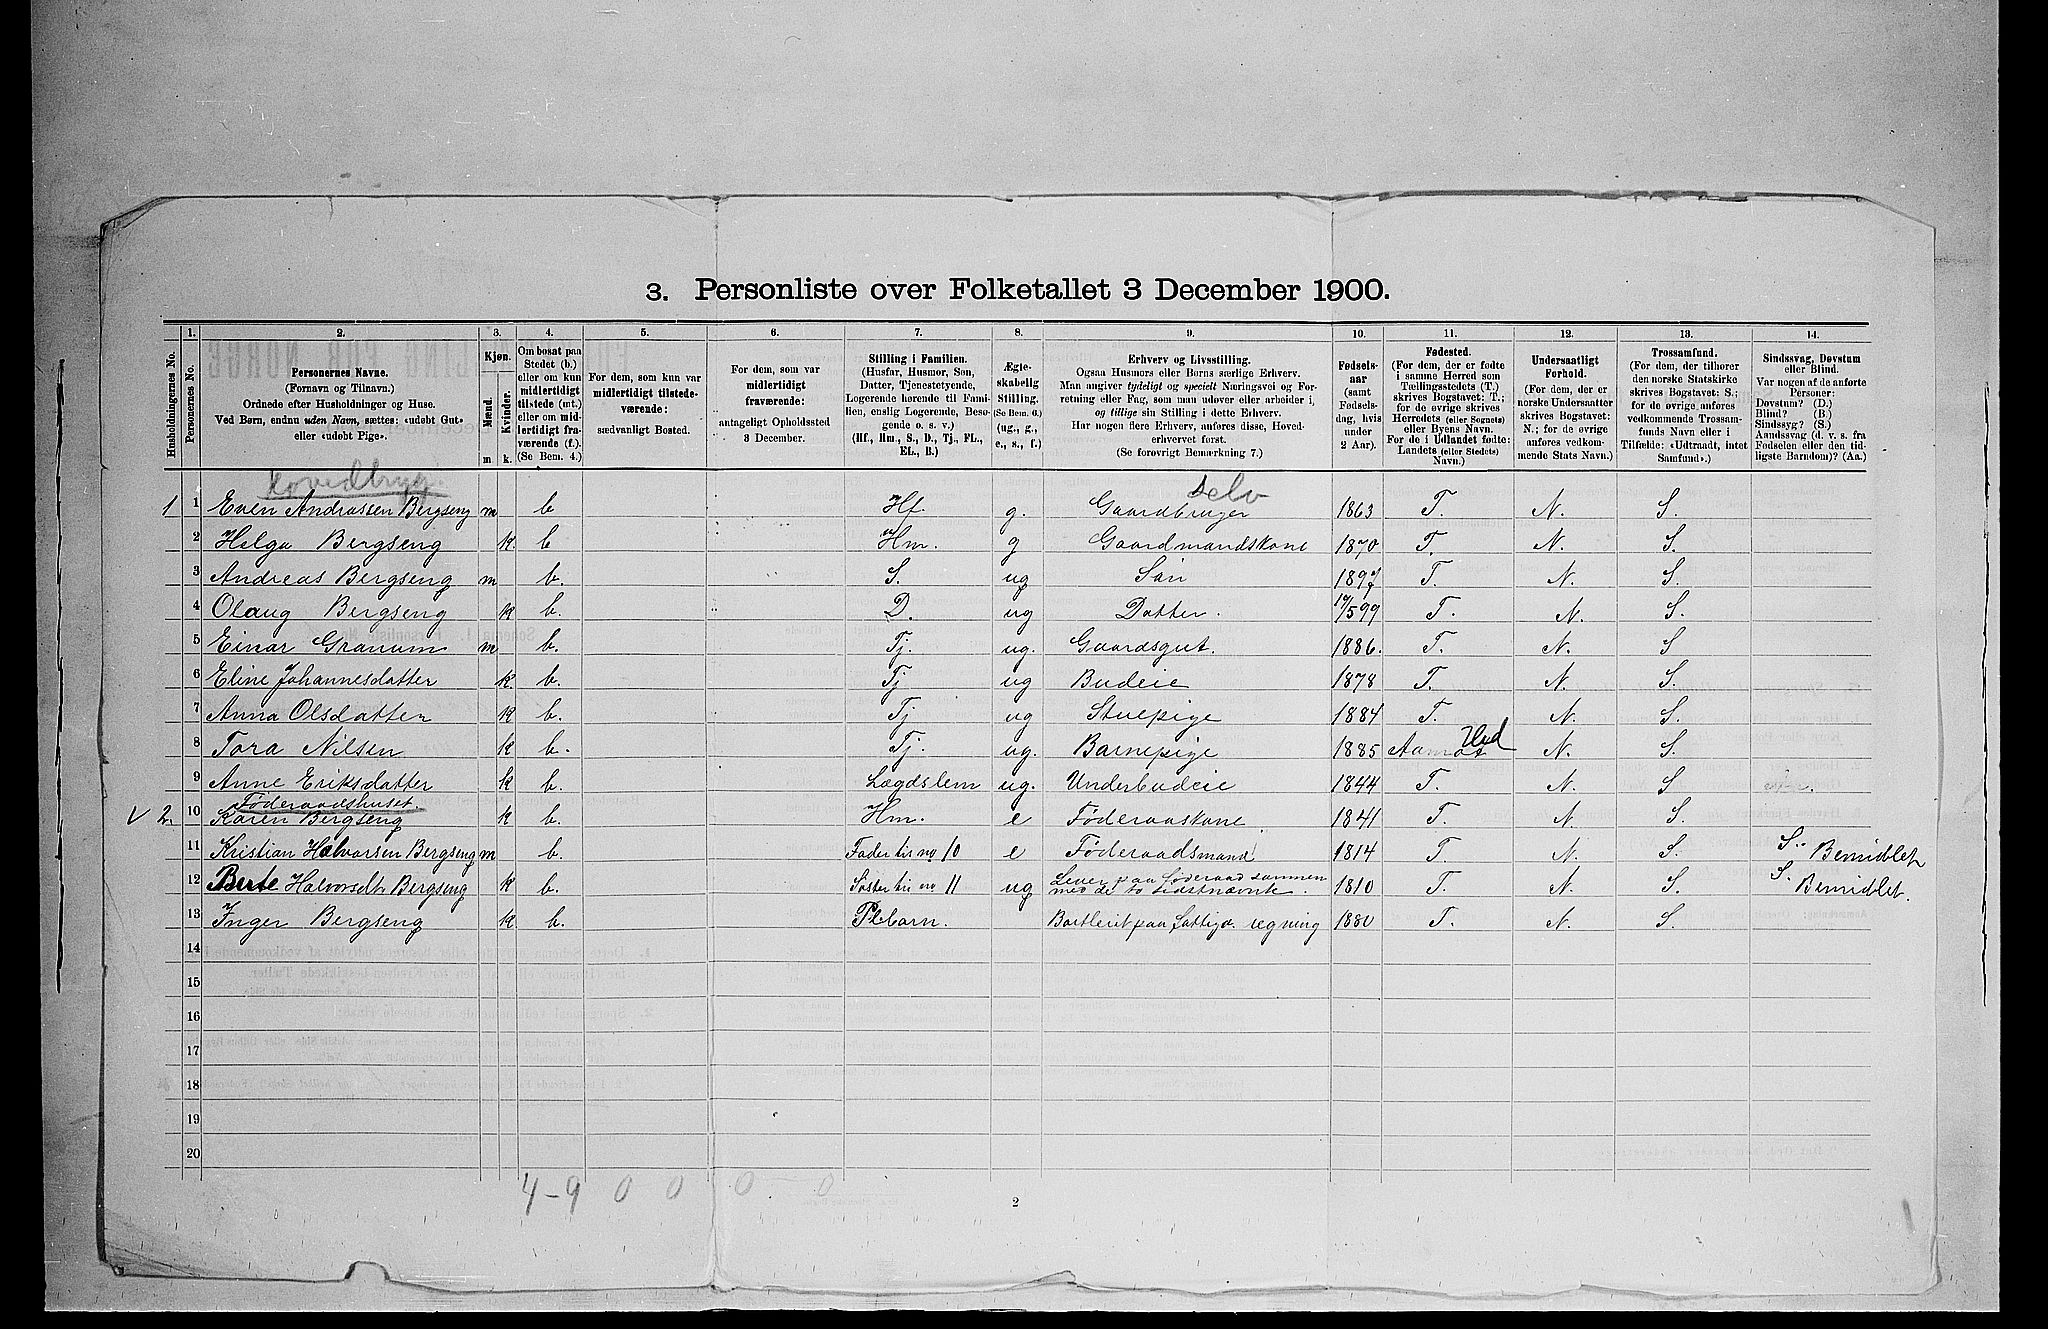 3. Personliste over Folketallet 3 December 1900.
1. 2. 3. 4. 5. 6. 7. 8. 9. 10. 11. 12. 13. 14.
Husholdningernes No.
Personernes No.
Personernes Navne.
(Fornavn og Tilnavn.)
Ordnede efter Husholdninger og Huse.
Ved Børn, endnu uden Navn, sættes: «udøbt Gut»
eller «udøbt Pige».
Kjøn.
Mænd.
Kvinder.
m k.
Om bosat paa
Stedet (b.)
eller om kun
midlertidigt
tilstede (mt.)
eller om mid-
lertidigt fra-
værende (f.).
(Se Bem. 4.)
For dem, som kun var
midlertidigt tilstede-
værende:
sædvanligt Bosted.
For dem, som var
midlertidigt
fraværende:
antageligt Opholdssted
3 December.
Stilling i Familien.
(Husfar, Husmor, Søn,
Datter, Tjenestetyende,
Logerende hørende til Fami-
lien, enslig Logerende, Besø-
gende o. s. v.)
(Hf., Hm., S., D., Tj., FL.,
EL., B.)
Ægte-
skabelig
Stilling.
(Se Bem. 6.)
(ug., g.,
e., s., f.)
Erhverv og Livsstilling.
Ogsaa Husmors eller Børns særlige Erhverv.
Man angiver tydeligt og specielt Næringsvei og For-
retning eller Fag, som man udøver eller arbeider i,
og tillige sin Stilling i dette Erhverv.
Har nogen flere Erhverv, anføres disse, Hoved-
erhvervet først.
(Se forøvrigt Bemærkning 7.)
Fødsels-
aar
(samt
Fødsels-
dag, hvis
under
2 Aar).
Fødested.
(For dem, der er fødte
i samme Herred som
Tællingsstedets (T.)
skrives Bogstavet: T.;
for de øvrige skrives
Herredets (eller Sognets)
eller Byens Navn.
For de i Udlandet fødte:
Landets (eller Stedets)
Navn.)
Undersaatligt
Forhold.
(For dem, der er
norske Undersaatter
skrives Bogstavet:
N.; for de øvrige
anføres vedkom-
mende Stats Navn.)
Trossamfund.
(For dem, der tilhører
den norske Statskirke
skrives Bogstavet: S.;
for de øvrige anføres
vedkommende Trossam-
funds Navn eller i
Tilfælde: «Udtraadt, intet
Samfund».)
Sindssvag, Døvstum
eller Blind.
Var nogen af de anførte
Personer:
Døvstum? (D.)
Blind? (B.)
Sindssyg? (S.)
Aandssvag (d. v. s. fra
Fødselen eller den tid-
ligste Barndom)? (Aa.)
Hovedbyg. selv
1 1 Even Andreassen Bergseng m b Hf. g. Gaardbruger 1863 T. N. S.
2 Helga Bergseng k b Hm. g Gaardmandskone 1870 T. N. S.
3 Andreas Bergseng m b. S. ug Søn 1897 T. N. S.
4 Olaug Bergseng k b. D. ug Datter. 19/5 99 T. N. S.
5 Einar Granum m b. Tj. ug. Gaardsgut. 1886. T. N. S
6 Eline Johannesdatter k. b. Tj ug Budeie 1878 T. N. S.
7 Anna Olsdatter k b. Tj ug Stuepige 1884 T. N. S.
8 Tora Nilsen k b. Tj. ug. Barnepige 1885 Aamot Hed N. S.
9 Anne Eriksdatter k b. Lægdslem ug. Underbudeie 1844 T. N. S
Føderaadshuset.
V 2. 10 Karen Bergseng k b. Hm. e Føderaaskone. 1841 T. N. S.
11 Kristian Halvorsen Bergseng m b. Fader til no 10 e Føderaadsmand 1814 T. N. S. S. Bemidlet
12 Berte Halvorsdtr Bergseng k b. Søster til no 11 ug Lever paa Føderaad sammen
med de to sidstnævnte. 1810 T. N. S. S. Bemidlet.
13 Inger Bergseng k b. Plbarn. Bortleiet paa fattigv. regning 1880 T. N. S.
14
15
16
17
18
19
20
4-9 0 0 0-0
2